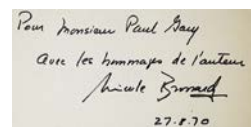 Pour Monsieur Paul Gary
Avec les hommages de l'auteur
Nicole Brossard
27.8.70